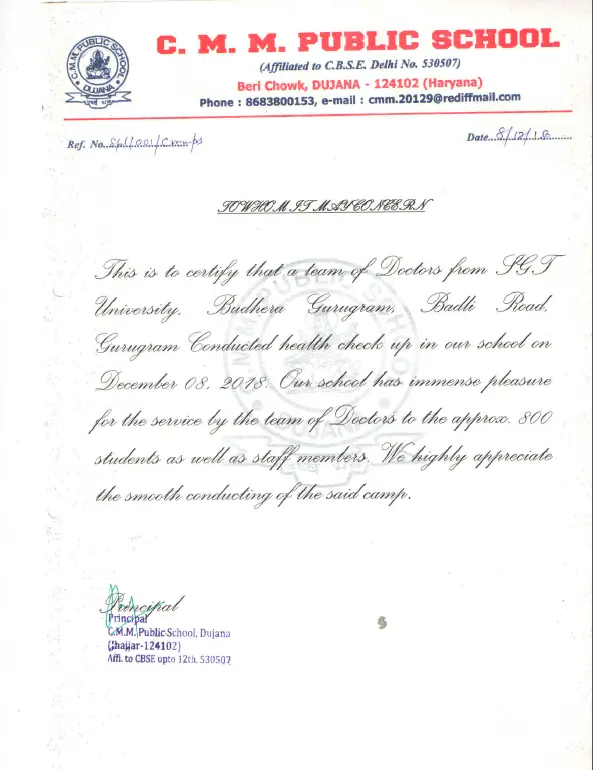 C. M. M. PUBLIC SCHOOL
(Affiliated to C.B.S.E. Delhi No. 530507)
Beri Chowk, DUJANA - 124102 (Haryana)
Phone : 8683800153, e-mail : cmm.20129@rediffmail.com
C.M.M. PUBLIC SCHOOL
DUJANA
Ref. No.
Date...8/12/18
TO WHOM IT MAY CONCERN
This is to certify that a team of Doctors from SGT
University, Budhera Gurugram, Badli Road,
Gurugram Conducted health check up in our school on
December 08, 2018. Our school has immense pleasure
for the service by the team of Doctors to the approx. 800
students as well as staff members. We highly appreciate
the smooth conducting of the said camp.
Principal
Principal
C.M.M. Public School, Dujana
(Jhajjar-124102)
Affi. to CBSE upto 12th. 530507